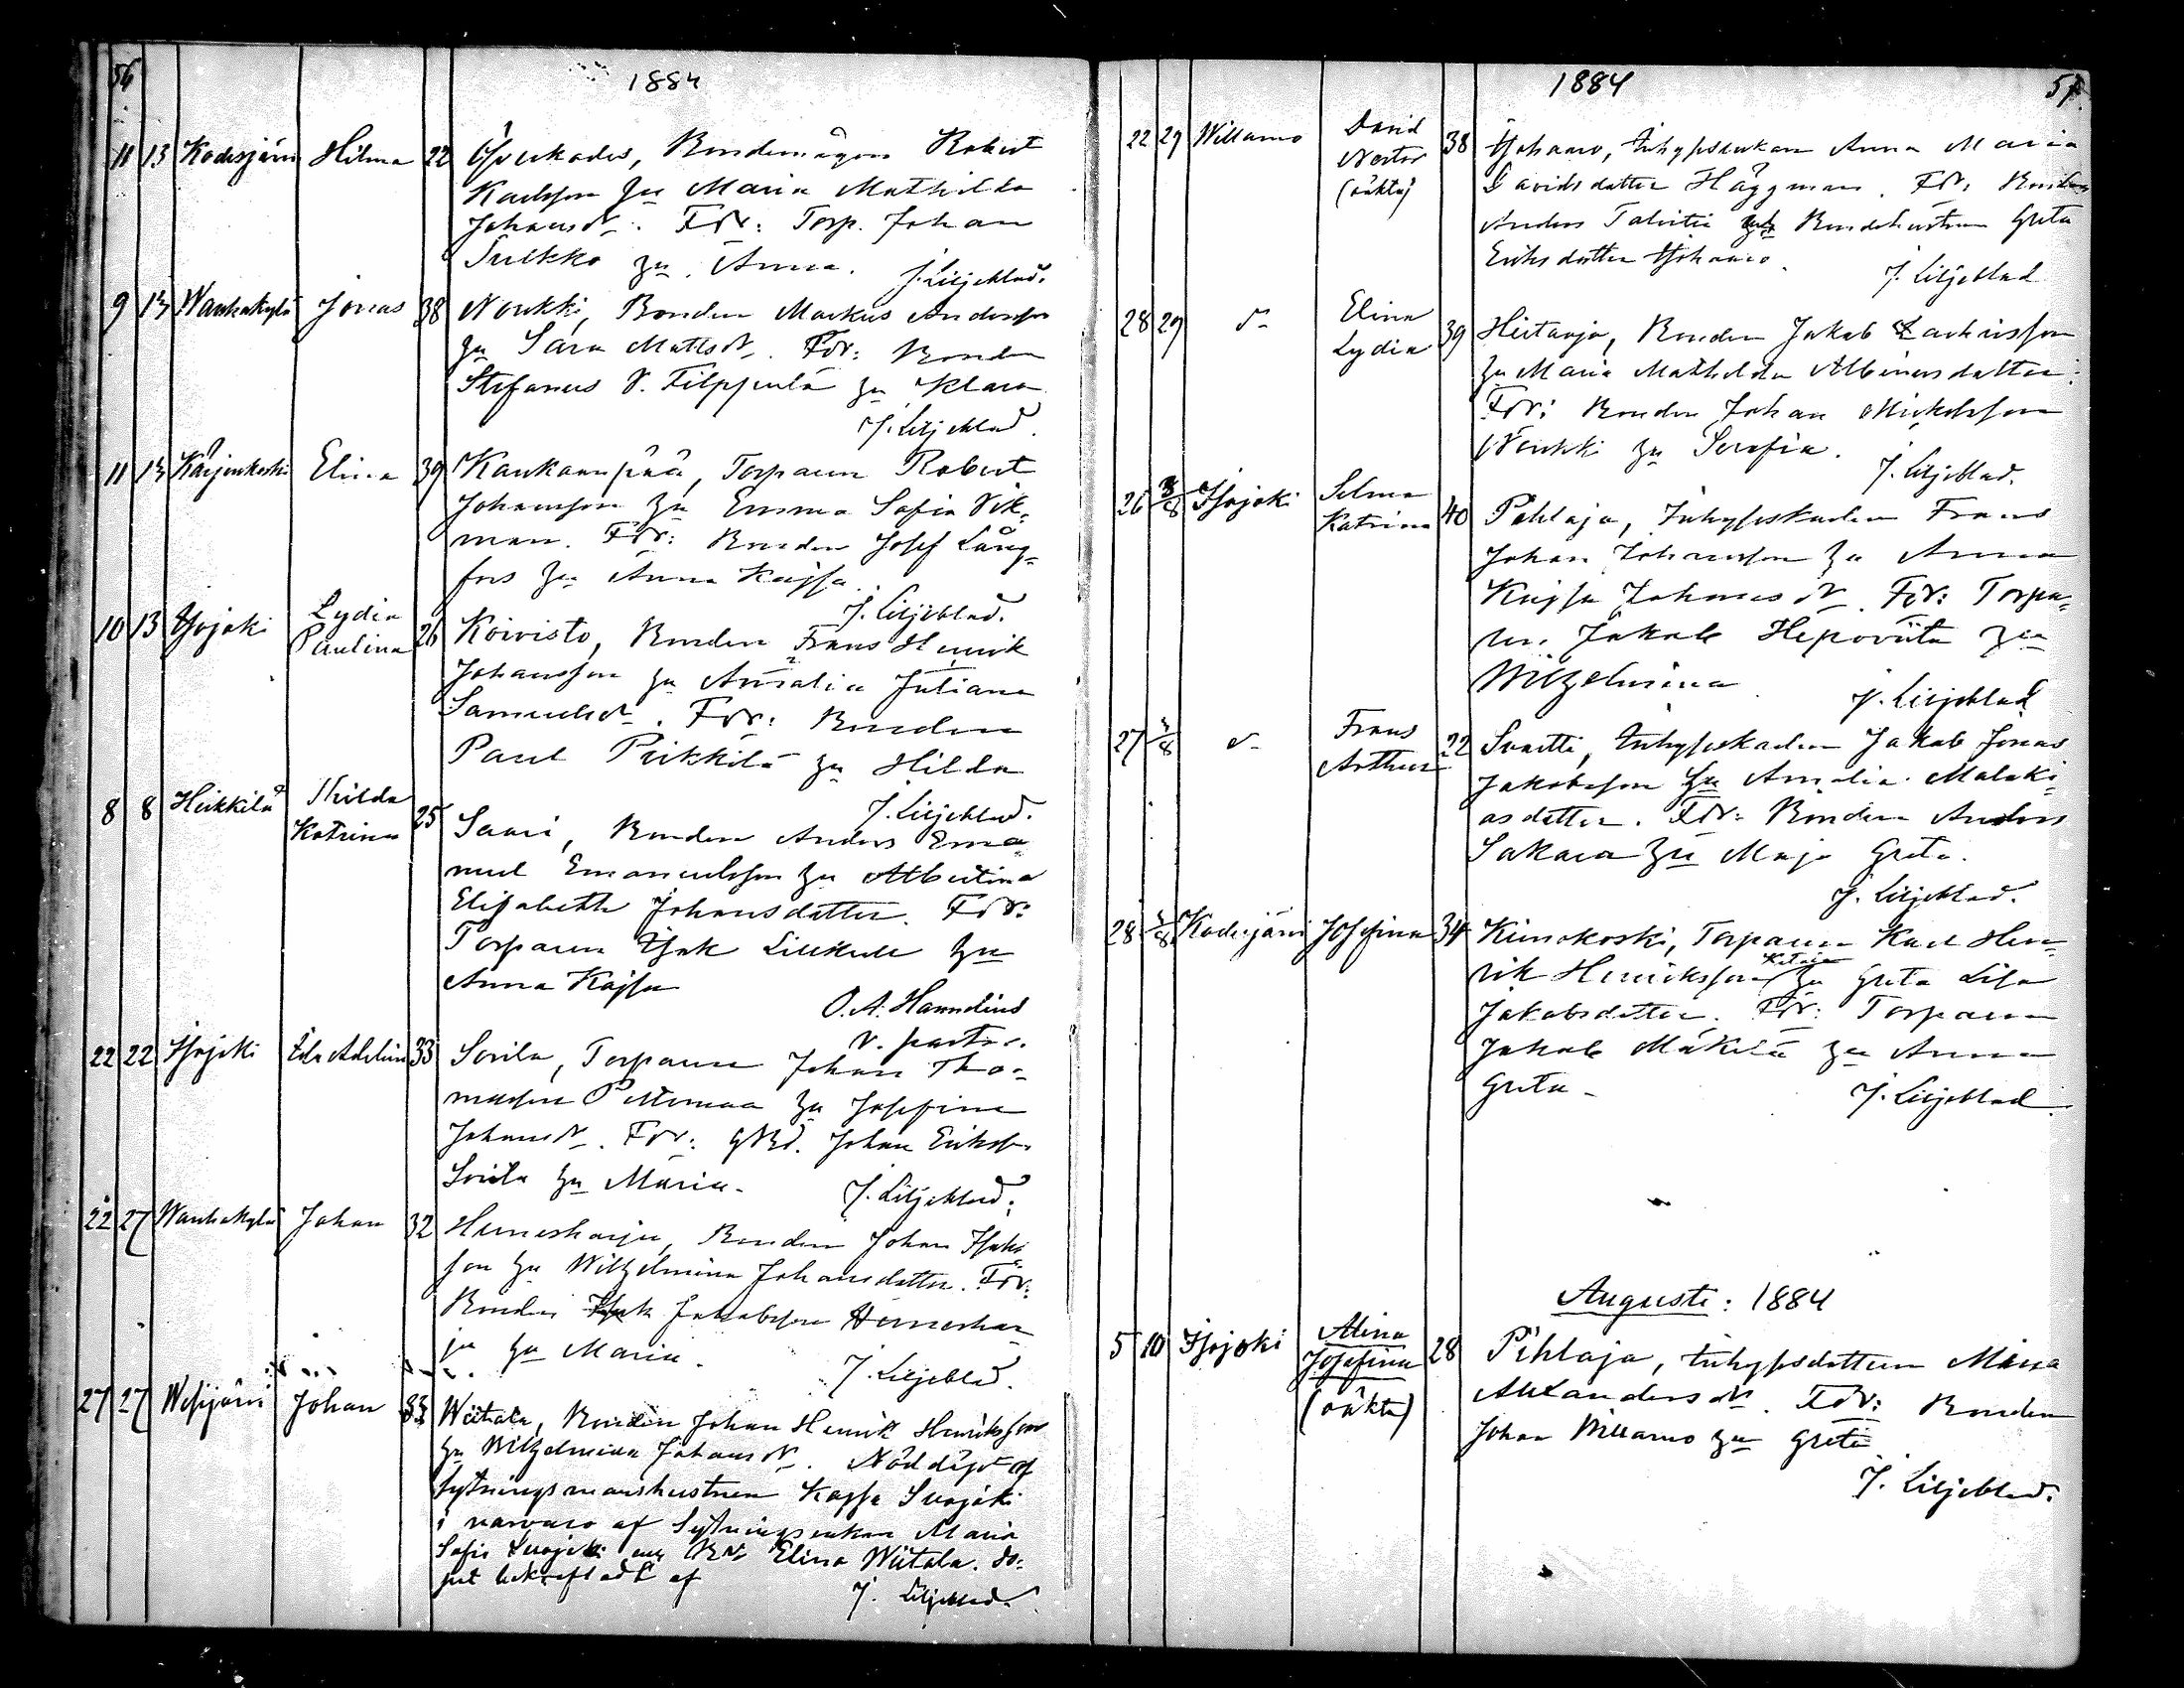 56
1884
11 13 Kodesjärvi Hilma 22 Öfverkodes, Bondemågen Robert
Karlsson & Maria Mathilda
Johansdr. Fdr: Torp. Johan
Sulkko & Anna.
J. Liljeblad.
9 13 Wanhakylä Jonas 38 Noukki, Bonden Markus Andersson
& Sara Mattsdr. Fdr: Bonden
Stefanus Filppula & Klara
J. Liljeblad.
11 13 Kärjenkoski Elina 39 Kankaanpää, Torparen Robert
Johansson & Emma Sofia Vik-
man. Fdr: Bonden Josef Lång-
fors & Anna Kajsa.
J. Liljeblad.
10 13 Isojoki Lydia
Paulina 26 Koivisto, Bonden Frans Henrik
Johansson & Amalia Juliana
Samuelsdr. Fdr: Bonden
Paul Pirkkilä & Hilda
J. Liljeblad.
8 8 Heikkilä Hilda
Katrina 25 Saari, Bonden Anders Ema-
nuel Emanuelsson & Albertina
Elisabeth Johansdotter. Fdr:
Torparen Isak Lillkull &
Anna Kajsa
O. A. Hamndius
v. pastor.
22 22 Isojoki Ida Adelina 33 Sorila, Torparen Johan Tho-
masson Peltomaa & Josefina
Johansdr. Fdr: Johan Eriksson
Sorila & Maria.
J. Liljeblad.
22 27 Wanhakylä Johan 32 Herneskarju, Bonden Johan Isaks
son & Wilhelmina Johansdotter. Fdr:
Bonden Isak Jakobsson Herneshar-
ju & Maria.
J. Liljeblad.
27 27 Wesijärvi Johan 33 Wiitala, Bonden Johan Henrik Henriksson
& Wilhelmina Johansdr. Nöddöpt af
sytningsmanshustrun Kajsa Suojoki
i närvaro af Sytningsenkan Maria
Sofia Suojoki och Elina Wiitala. Do-
pet bekräftadt af
J. Liljeblad.
1884
57.
22 29 Willamo David
Nestor
(oäkta) 38 Ojohaaro, Inhysesenkan Anna Maria
Davidsdotter Häggman. Fdr: Bonden
Anders Talvitie och Bondehustrun Greta
Eriksdotter Ojohaaro.
J. Liljeblad
28 29 d:o Elina
Lydia 39 Hietaoja, Bonden Jakob Zachrisson
& Maria Mathilda Albinusdotter.
Fdr: Bonden Johan Mickelsson
Noukki & Serafia.
J. Liljeblad.
26 3/8 Isojoki Selma
Katrina 40 Pihlaja, Inhyseskarlen Frans
Johan Johansson & Anna
Kajsa Johansdr. Fdr: Torpa-
ren Jakob Heponiitu &
Wilhelmina
J. Liljeblad
27 3/8 d:o Frans
Arthur 22 Svartti, Inhyseskarlen Jakob Jonas
Jakobsson & Amalia Malaki-
asdotter. Fdr: Bonden Anders
Sakara & Maja Greta.
J. Liljeblad.
28 3/8 Kodesjärvi Josefina 34 Kiimokoski, Torparen Karl Hen-
rik Henriksson Kataja & Greta Lisa
Jakobsdotter. Fdr: Torparen
Jakob Mäkelä & Anna
Greta.
J. Liljeblad
Augusti: 1884
5 10 Isojoki Alina
Josefina
(oäkta) 28 Pihlaja, Inhysesdottern Maria
Alexandersdr. Fdr: Bonden
Johan Willamo & Greta
J. Liljeblad.